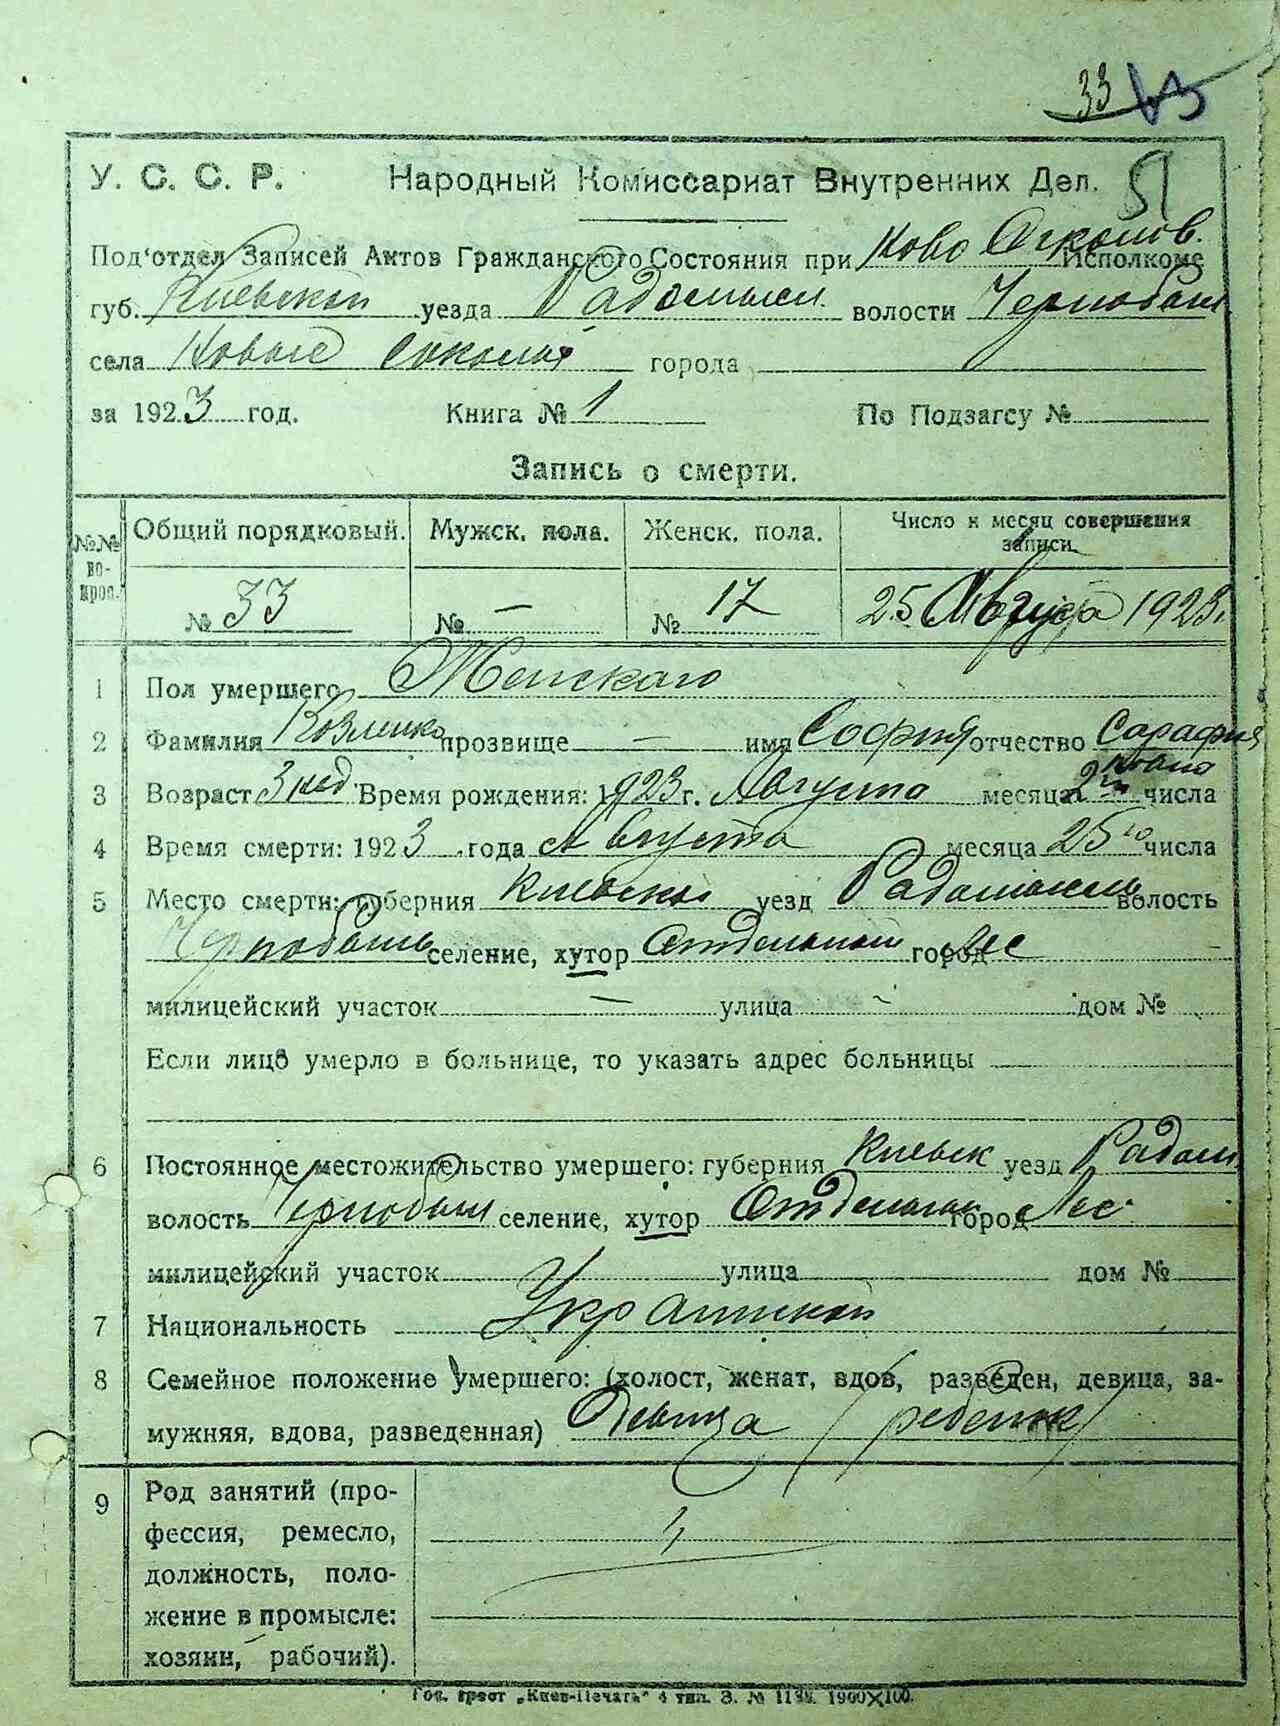 33
51
У. С. С. Р. Народный Комиссариат Внутренних Дел.
Под'отдел Записей Актов Гражданского Состояния при Ново Исполкоме
губ. Киевской уезда Радомысл волости Чернобыл
села Новые Соколы города
за 1923 год. Книга № 1 По Подзагсу №
Запись о смерти.
№№ вопрос. Общий порядковый. Мужск. пола. Женск. пола. Число и месяц совершения записи
№ 33 № — № 17 25 Августа 1923 г.
1 Пол умершего Женскаго
2 Фамилия Козленко прозвище — имя София отчество
3 Возраст 3 нед Время рождения: 1923 г. Августа месяца 2 числа
4 Время смерти: 1923 года Августа месяца 25го числа
5 Место смерти: губерния Киевской уезд волость
селение, хутор город Лес
милицейский участок — улица - дом №
Если лицо умерло в больнице, то указать адрес больницы
6 Постоянное местожительство умершего: губерния Киевск уезд Радом
волость Чернобыл селение, хутор город Лес
милицейский участок улица дом №
7 Национальность Украинской
8 Семейное положение умершего: (холост, женат, вдов, разведен, девица, за-
мужняя, вдова, разведенная) Девица (ребенок)
9 Род занятий (про-
фессия, ремесло,
должность, поло-
жение в промысле:
хозяин, рабочий).
Гос. трест „Киев-Печать" 4 тип. З. № 1900×100.